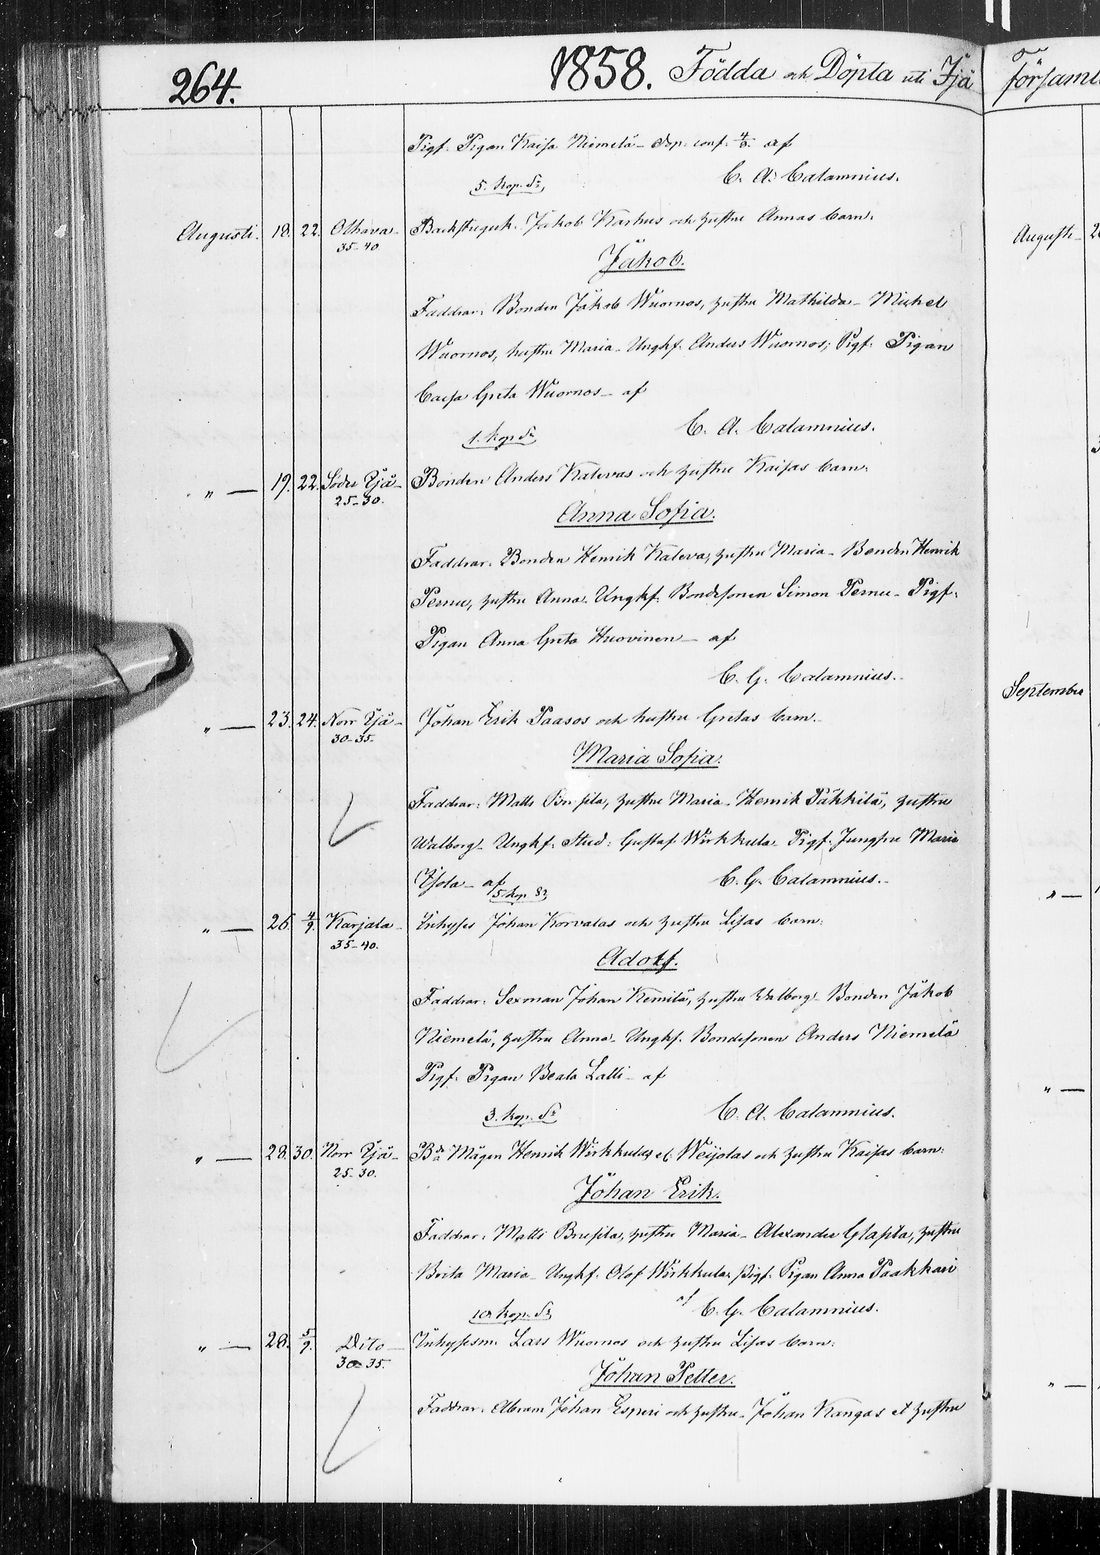 264.
1858. Födda och Döpta uti Ijå
Pigf. Pigan Kaisa Niemelä - dop. conf. 4/8. af
5. kop. Sr. C. A. Calamnius.
Augusti. 18. 22. Olhava Backstuguk. Jakob Karhus och hustru Annas barn.
35-40
Jakob.
Faddrar. Bonden Jakob Wuornos, hustru Mathilda - Mickel
Wuornos, hustru Maria - Ungkf. Anders Wuornos; Pigf. Pigan
Caisa Greta Wuornos - af
1. kop Sr C. A. Calamnius.
" — 19. 22. Söder Ijå - Bonden Anders Kalevas och hustru Kaisas barn.
25-30.
Anna Sofia.
Faddrar. Bonden Henrik Kaleva, hustru Maria - Bonden Henrik
Pernu, hustru Anna. Ungkf. Bondesonen Simon Pernu - Pigf.
Pigan Anna Greta Huovinen - af
C. G. Calamnius.
" — 23. 24. Norr Ijå - Johan Erik Paasos och hustru Gretas barn.
30-35.
Maria Sofia.
Faddrar. Matts hustru Maria - Henrik Päkkilä, hustru
Walborg - Ungkf. Stud. Gustaf Wirkkula. Pigf. Jungfru Maria
Isola - af 5. kop. C. G. Calamnius.
" — 26. 4/9. Karjala - Inhyses Johan Korvalas och hustru Lisas barn.
35-40.
Adolf.
Faddrar. Sexman Johan Kemilä, hustru Walborg - Bonden Jakob
Niemelä, hustru Anna - Ungkf. Bondesonen Anders Niemelä
Pigf. Pigan Beata Lalli - af
3. kop. Sr C. A. Calamnius.
" — 28. 30. Norr Ijå - Bde Mågen Henrik Wirkkulas el. Weijolas och hustru Kaisas barn.
25-30.
Johan Erik.
Faddrar. Matts hustru Maria - Alexander hustru
Brita Maria - Ungkf. Olof Wirkkula pigf. Pigan Anna Paakkari
10 kop. Sr af C. G. Calamnius.
" — 28. 5/9. Dito - Inhysesm. Lars Wuornos och hustru Lisas barn.
30-35.
Johan Petter.
Faddrar. Abram Johan Esperi och hustru - Johan Kangas et hustru
Församl
Augusti - 2
September
" —
" —
" —